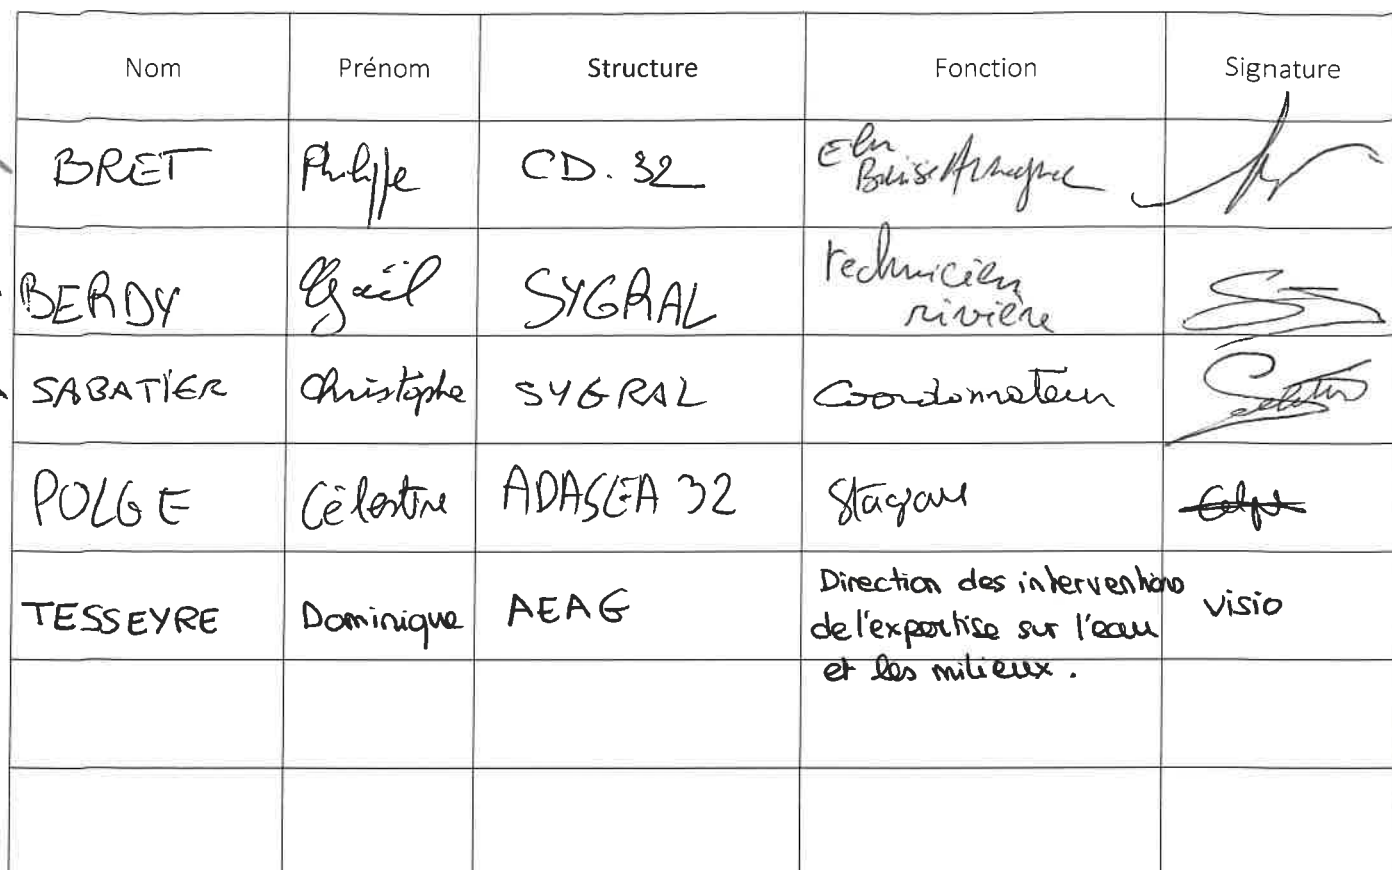 Nom Prénom Structure Fonction Signature
BRET Philippe CD. 32 Elu
Baïse Armagnac
BERDY Gaël SYGRAL technicien
rivière
SABATIER Christophe SYGRAL Coordonnateur
POLGE Célestine ADASEA 32 Stagiaire
TESSEYRE Dominique AEAG Direction des interventions visio
de l'expertise sur l'eau
et les milieux.